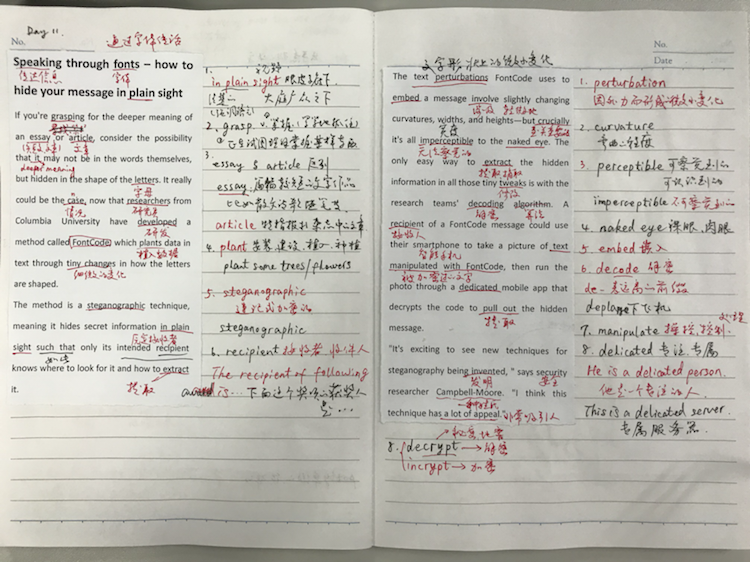 Day 11.
No.
通过字体传话
Speaking through fonts – how to
传达信息 字体
hide your message in plain sight
If you're grasping for the deeper meaning of
an essay or article, consider the possibility
文章
that it may not be in the words themselves,
deeper meaning
but hidden in the shape of the letters. It really
字母
could be the case, now that researchers from
情况 研究员
Columbia University have developed a
研发
method called FontCode which plants data in
植入数据
text through tiny changes in how the letters
细微的变化
are shaped.
The method is a steganographic technique,
meaning it hides secret information in plain
sight such that only its intended recipient
knows where to look for it and how to extract
提取
it.
1.
in plain sight 眼皮底下
大庭广众之下
2. grasp v. 掌握
3.
essay & article 区别
essay
article 特指报刊杂志中文章
4. plant 安装, 建设, 植入, 种植
plant some trees/flowers
5. steganographic
steganographic
6. recipient 接收者 收件人
The recipient of following
is… 下面这个奖项的获奖人
是…
No.
Date
文字形状上的微小变化
The text perturbations FontCode uses to
embed a message involve slightly changing
curvatures, widths, and heights—but crucially
it's all imperceptible to the naked eye. The
无法察觉的
only easy way to extract the hidden
提取
information in all those tiny tweaks is with the
research teams' decoding algorithm. A
解密 算法
recipient of a FontCode message could use
接收人
their smartphone to take a picture of text
智能手机
manipulated with FontCode, then run the
photo through a dedicated mobile app that
decrypts the code to pull out the hidden
提取
message.
"It's exciting to see new techniques for
steganography being invented, " says security
发明 安全
researcher Campbell-Moore. "I think this
technique has a lot of appeal. 非常吸引人
8. decrypt → 解密
incrypt → 加密
1. perturbation
因外力而形成的微小变化
2. curvature
弯曲, 曲度
3. perceptible 可察觉到的
可识别到的
imperceptible 不可察觉到的
4. naked eye 裸眼、肉眼
5. embed 嵌入
6. decode 解密
de- 表远离的前缀
deplane 下飞机
处理
7. manipulate 操控, 控制
8. delicated 专注, 专属
He is a delicated person.
他是一个专注的人
This is a delicated server.
专属服务器.